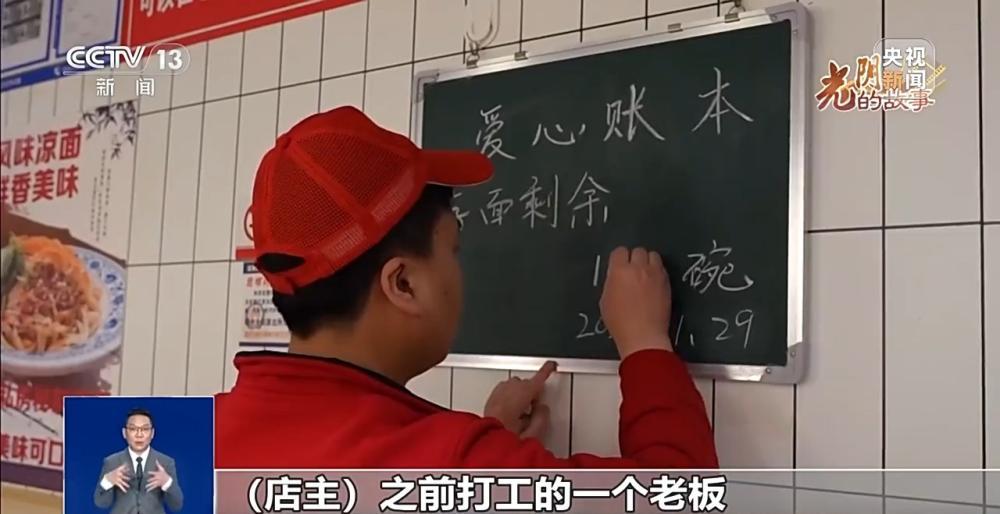 CCTV 13
新闻
央视新闻
光阴的故事
可以
风味凉面
鲜香美味
美味可口
爱心账本
面剩余
1 碗
29
(店主)之前打工的一个老板